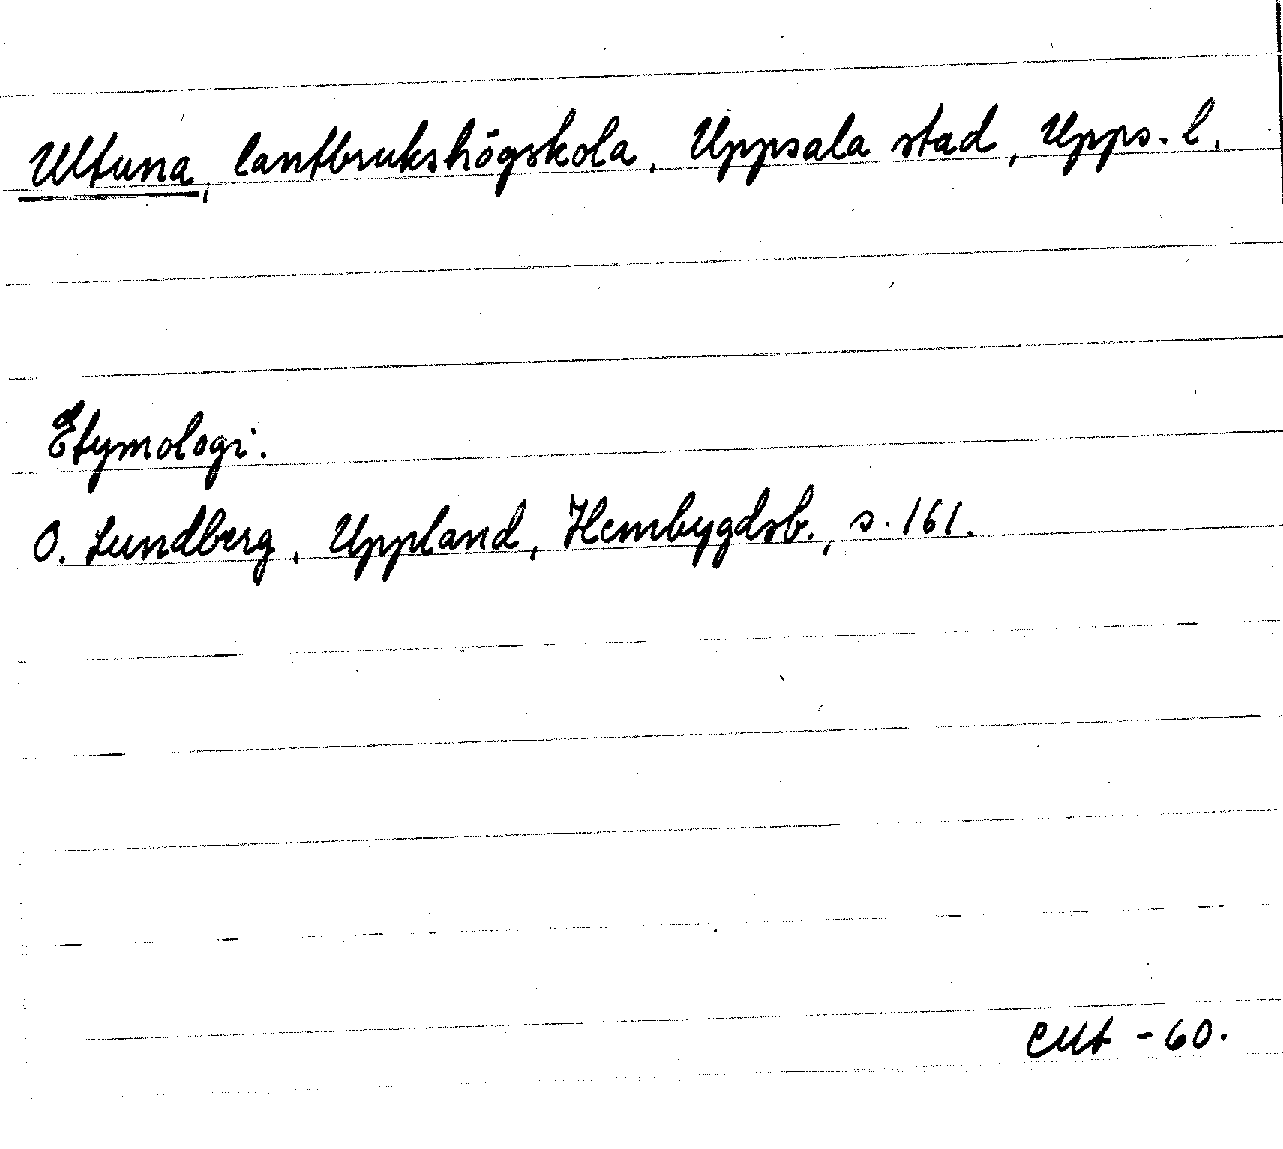 Ultuna, lantbrukshögskola, Uppsala stad, Upps. l.
Etymologi.
O. Lundberg, Uppland, Hembygdsb., s. 161.
-60.